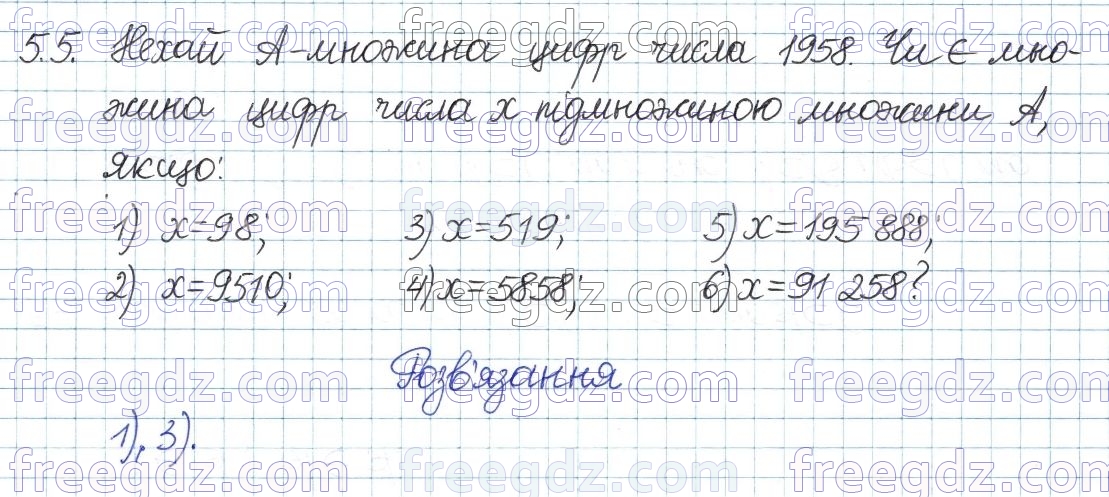 5.5. Нехай А-множина цифр числа 1958. Чи є мно-
жина цифр числа х підмножиною множини А,
якщо:
1) x=98; 3) x=519; 5) x=195 888;
2) x=9510; 4) x=5858; 6) x=91 258?
Розв'язання
1), 3).
freegdz.com